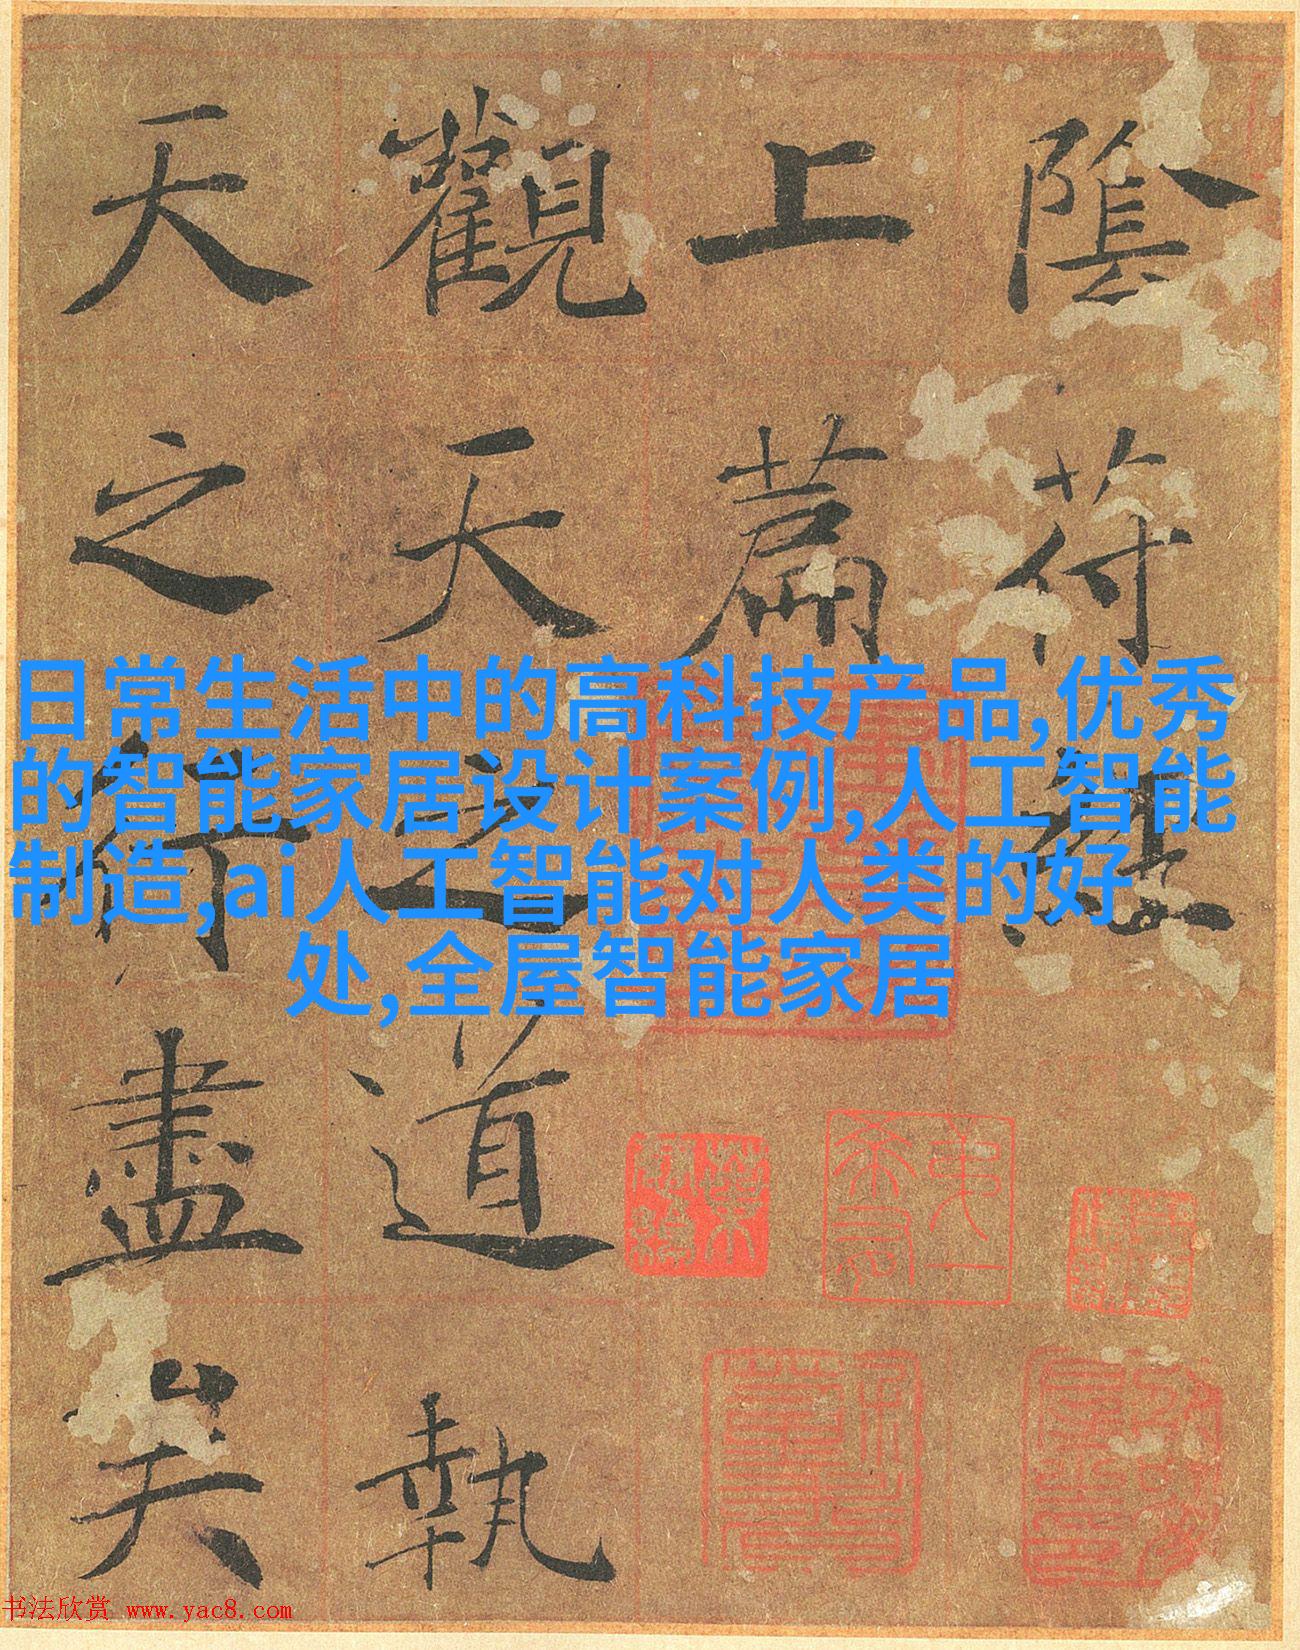 隂苻經
上萹
觀天之道執
天之行盡矣
日常生活中的高科技产品,优秀
的智能家居设计案例,人工智能
制造,ai人工智能对人类的好
处,全屋智能家居
书法欣赏 www.yac8.com